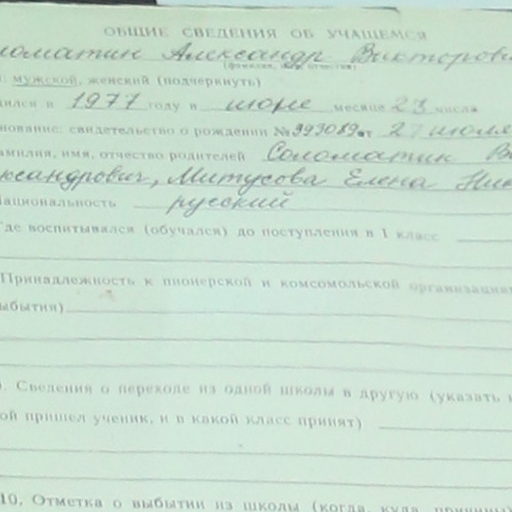 ОБЩИЕ СВЕДЕНИЯ ОБ УЧАЩЕМСЯ
ломатин Александр Викторови
(фамилия, имя, отчество)
: мужской, женский (подчеркнуть)
ился в 1977 году в июне месяце 23 числа
нование: свидетельство о рождении № 393089 от 2 июля
амилия, имя, отчество родителей Соломатин Ви
ксандрович, Митусова Елена Ник
Национальность русский
Где воспитывался (обучался) до поступления в I класс
Принадлежность к пионерской и комсомольской организация
ыбытия)
. Сведения о переходе из одной школы в другую (указать
ой пришел ученик, и в какой класс принят)
10. Отметка о выбытии из школы (когда, куда, причины)